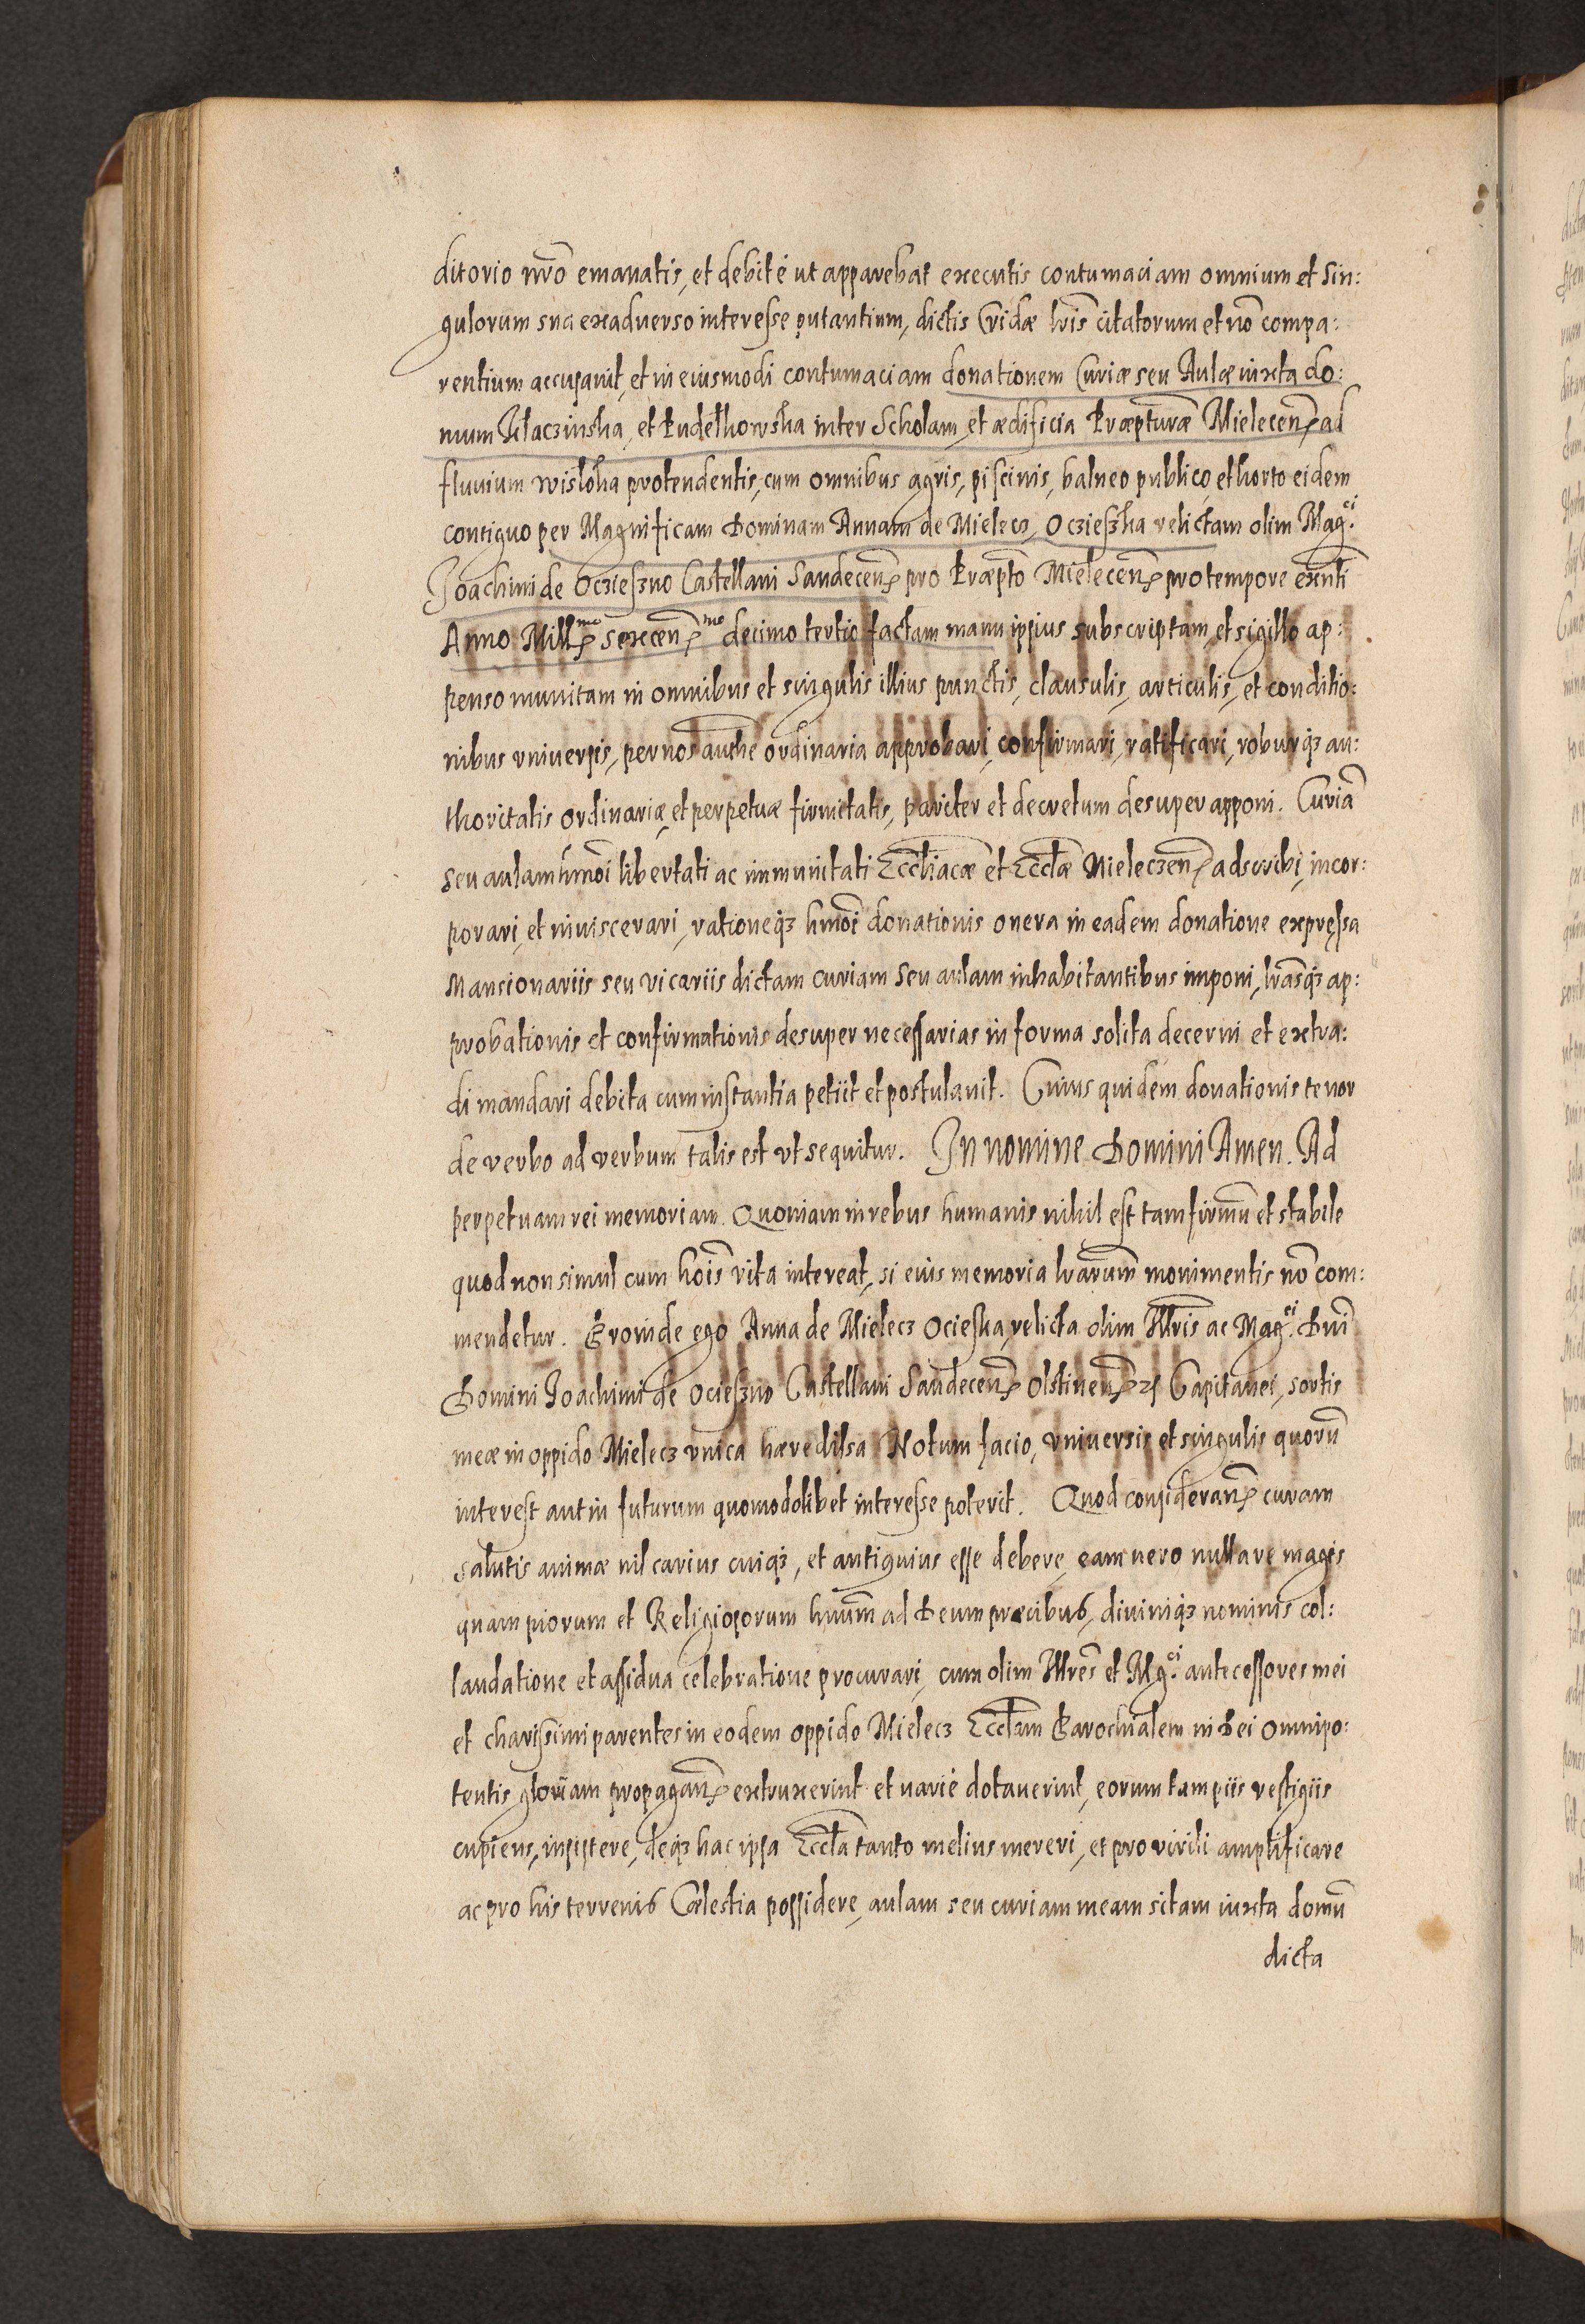 ditorio nr̃o emanatis, et debitè ut apparebat executis contumaciam omnium et sin:
gulorum sua exadverso interesse putantium, dictis Cridæ lr̃is citatorum et nõ compa:
rentium accusavit, et in eiusmodi contumaciam donationem Curiæ seu Aulæ iuxta do:
mum Klaczinska, et Pudelkowska inter Scholam, et ædificia Præpturæ Mielecen. ad
fluvium wisloka protendentis, cum omnibus agris, piscinis, balneo publico, et horto eidem
contiguo per Magnificam Dominam Annam de Mielecz, Oczieszka relictam olim Mag.ci
Joachimi de Oczieszno Castellani Sandecen. pro Præpto Mielecen. pro tempore exñti
Anno Mill.mo sexcen.mo decimo tertio factam manu ipsius subscriptam, et sigillo ap:
penso munitam in omnibus et singulis illius punctis, clausulis, articulis, et conditio:
nibus universis, per nos authe ordinaria approbari, confirmari, ratificari, roburqȝ au:
thoritatis ordinariæ, et perpetuæ firmitatis, pariter et decretum desuper apponi. Curiã
seu aulam hmõi libertati ac immunitati Eccliacæ et Ecclæ Mieleczen. adscribi, incor:
porari, et inviscerari, rationeqȝ hmõi donationis onera in eadem donatione expressa
Mansionariis seu vicariis dictam curiam seu aulam inhabitantibus imponi, lr̃asqȝ ap:
probationis et confirmationis desuper necessarias in forma solita decerni et extra:
di mandari debita cum instantia petiit et postulavit. Cuius quidem donationis tenor
de verbo ad verbum talis est ut sequitur. In nomine Domini Amen. Ad
perpetuam rei memoriam. Quoniam in rebus humanis nihil est tam firmũ et stabile
quod non simul cum hoĩs vita intereat, si eius memoria lr̃arum monimentis nõ com:
mendetur. Proinde ego Anna de Mielecz Ocieska, relicta olim Illris ac Mag.ci Dni
Domini Joachimi de Ocieszno Castellani Sandecen. Olstinen. Capitanei, sortis
meæ in oppido Mielecz unica hæredissa Notum facio, universis et singulis quorũ
interest aut in futurum quomodolibet interesse poterit. Quod consideran. curam
salutis animæ nil carius cuiqȝ, et antiquius esse debere, eam vero nulla re magis
quam piorum et Religiosorum hnum ad Deum præcibus, diviniqȝ nominis col:
laudatione et assidua celebratione procurari, cum olim Illres et Mg.ci antecessores mei
et charissimi parentes in eodem oppido Mielecz Ecclam Parochialem in Dei omnipo:
tentis gloriam propagan. extruxerint et variè dotaverint, eorum tam piis vestigiis
cupiens, insistere, deqȝ hac ipsa Eccla tanto melius mereri, et pro virili amplificare
ac pro his terrenis Cælestia possidere, aulam seu curiam meam sitam iuxta domũ
dicta